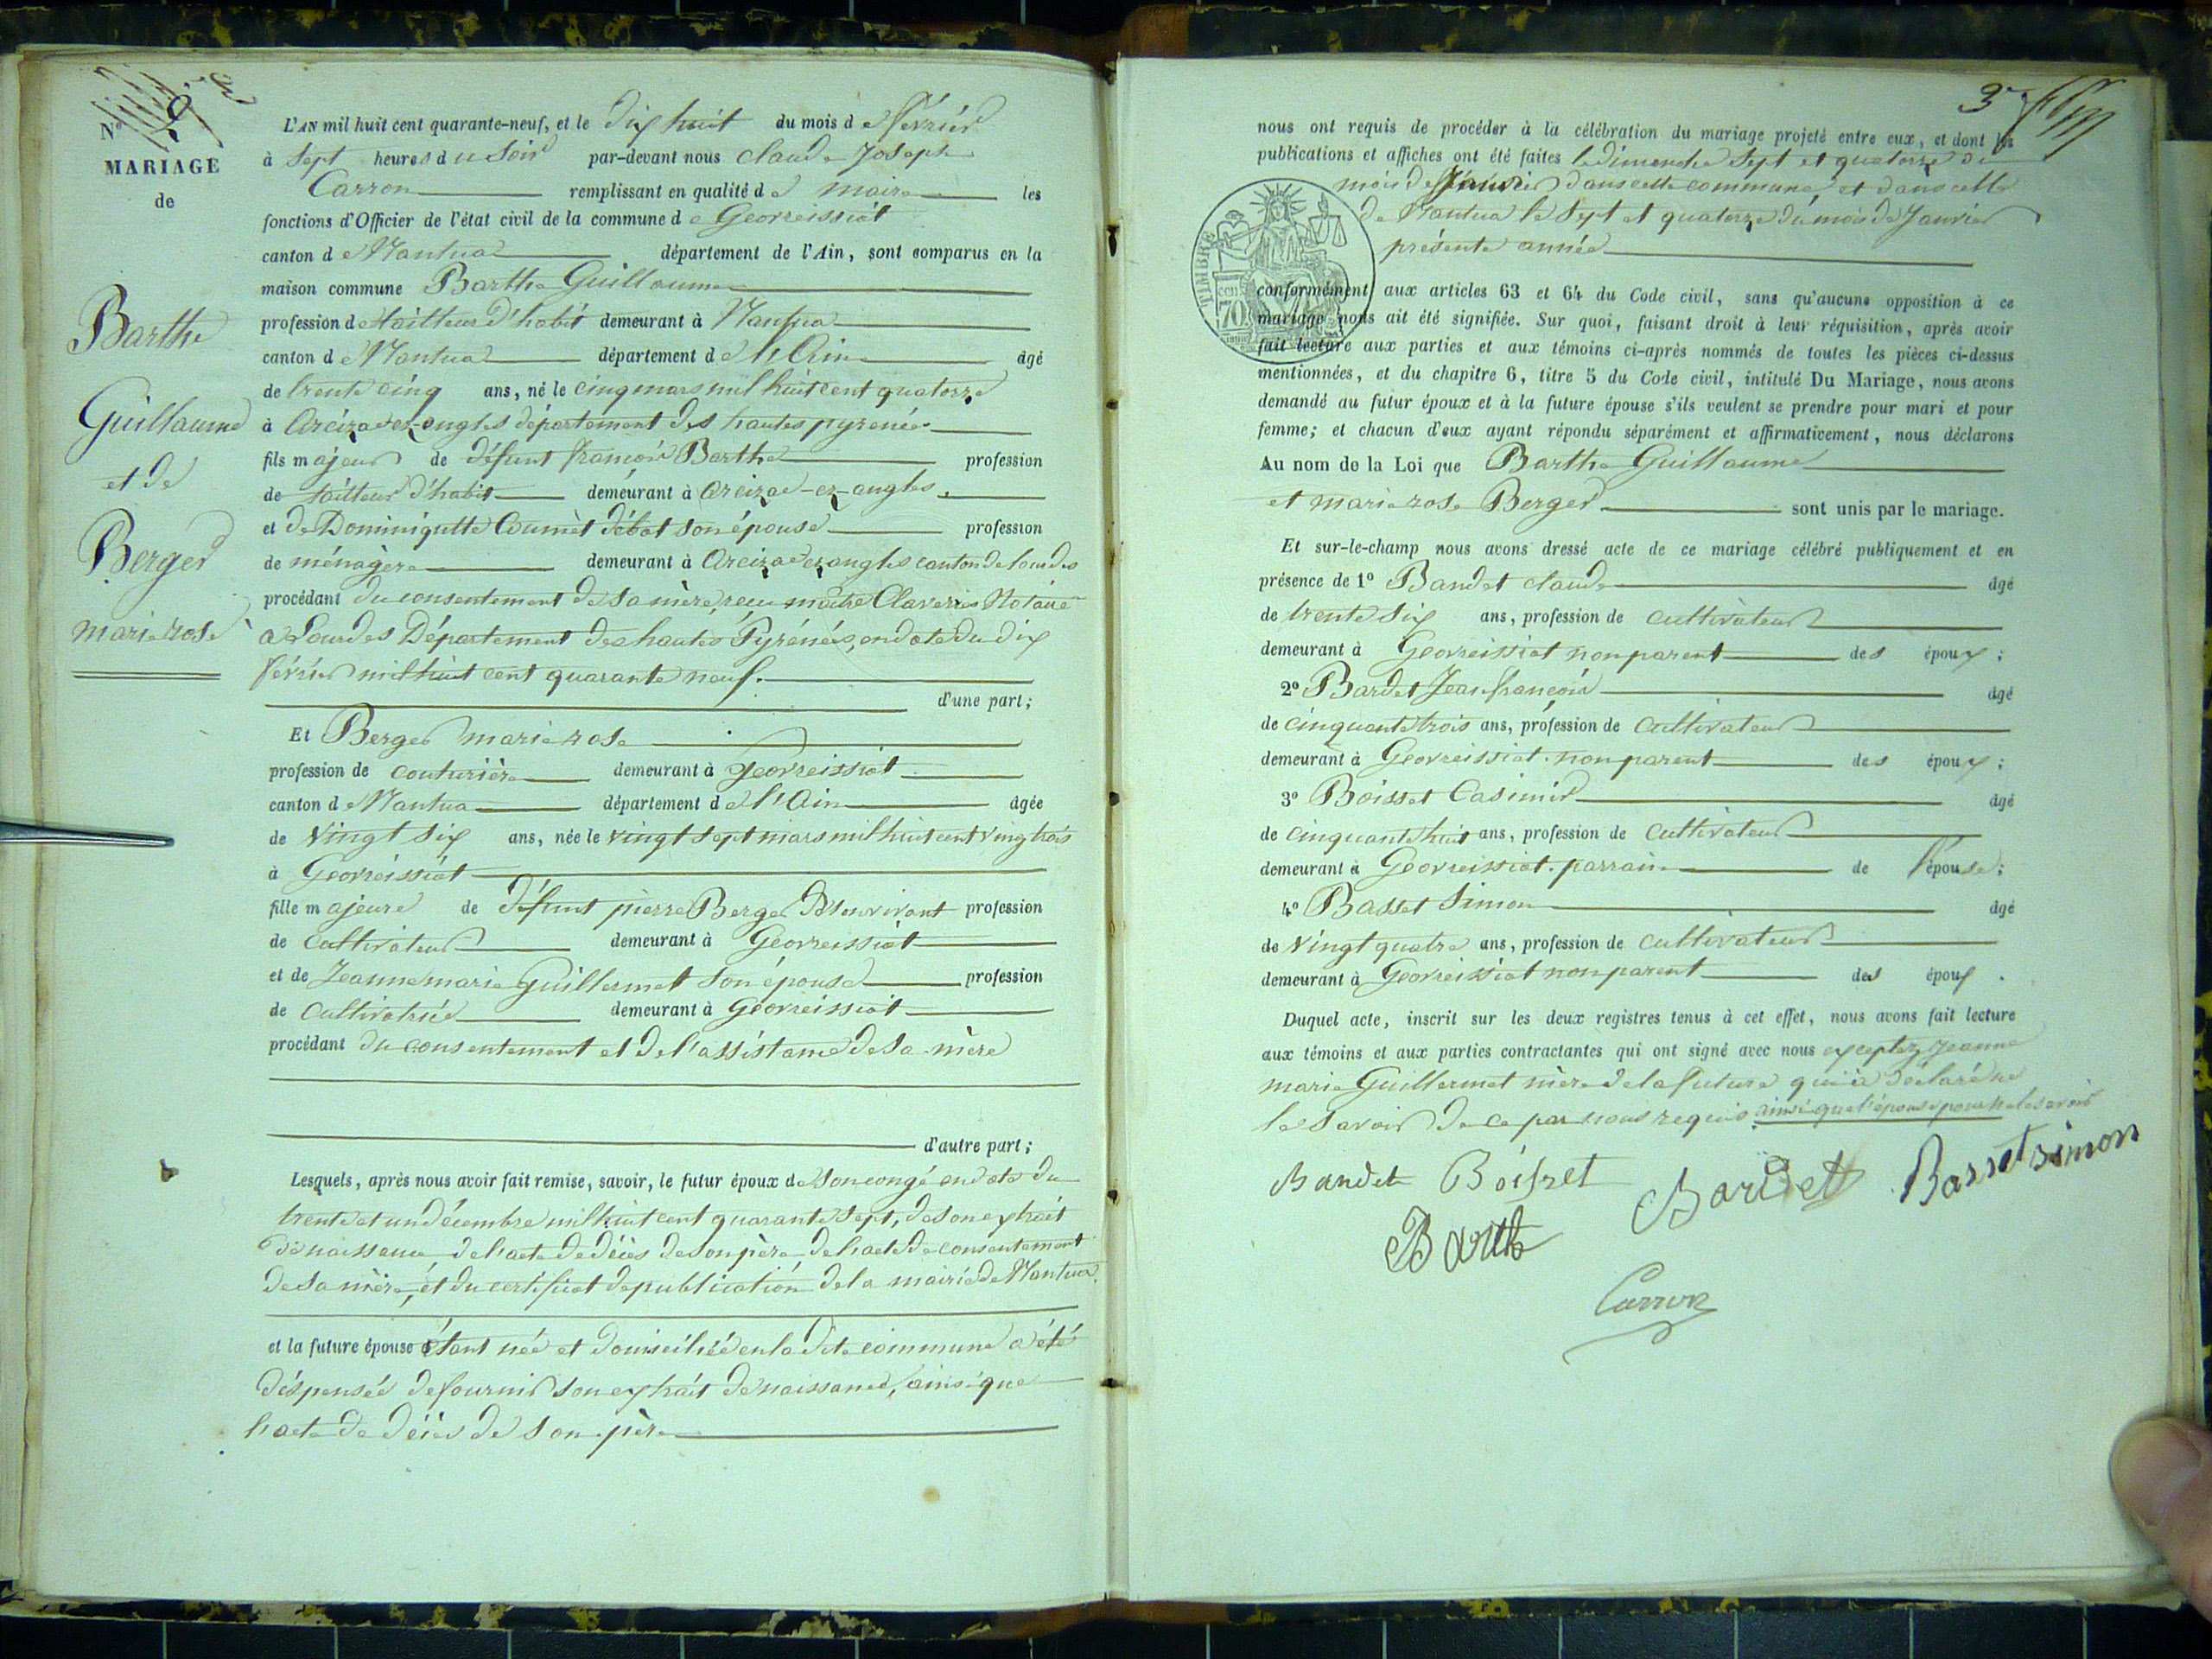 N° 2
MARIAGE
de
Barthe
Guillaume
et de
Berger
marie rose
L'AN mil huit cent quarante-neuf, et le dix huit du mois de février
à sept heures du soir par-devant nous claude Joseph
Carron remplissant en qualité de maire les
fonctions d'Officier de l'état civil de la commune de Georreissiat
canton de Nantua département de l'Ain, sont comparus en la
maison commune Barthe Guillaume
profession de tailleur d'habit demeurant à Nantua
canton de Nantua département de l'Ain âgé
de trente cinq ans, né le cinq mars mil huit cent quatorze
à Arcizac-ez-angles département des hautes pyrenées
fils majeur de défunt françois Barthe profession
de tailleur d'habit demeurant à Arcizac-ez-angles
et de Dominiquette Coumèt débat son épouse profession
de ménagère demeurant à Arcizac ez angles canton de lourdes
procédant du consentement de sa mère, reçu maitre Claverie Notaire
a Lourdes Département des hautes Pyrénées, en date du dix
février mil huit cent quarante neuf.
d'une part;
Et Berger marie rose
profession de couturière demeurant à Georreissiat
canton de Nantua département de l'Ain âgée
de vingt six ans, née le vingt sept mars mil huit cent vingt trois
à Georreissiat
fille majeure de défunt pierre Berger de son vivant profession
de cultivateur demeurant à Georreissiat
et de Jeanne marie Guillermet son épouse profession
de cultivatrice demeurant à Georreissiat
procédant du consentement et de l'assistance de sa mère
d'autre part;
Lesquels, après nous avoir fait remise, savoir, le futur époux de son congé en date du
trente et un décembre mil huit cent quarante sept, de son extrait
de naissance, de l'acte de décès de son père, de l'acte de consentement
de sa mère, et du certificat de publication de la mairie de Nantua.
et la future épouse étant née et domiciliée en la dite commune a été
dispensée de fournir son extrait de naissance, ainsi que
l'acte de décès de son père
3
nous ont requis de procéder à la célébration du mariage projeté entre eux, et dont les
publications et affiches ont été faites le dimanche sept et quatorze du
mois de Janvier dans cette commune et dans celle
de Nantua le sept et quatorze du mois de Janvier
présente année
TIMBRE
70
conformément aux articles 63 et 64 du Code civil, sans qu'aucune opposition à ce
mariage nous ait été signifiée. Sur quoi, faisant droit à leur réquisition, après avoir
fait lecture aux parties et aux témoins ci-après nommés de toutes les pièces ci-dessus
mentionnées, et du chapitre 6, titre 5 du Code civil, intitulé Du Mariage, nous avons
demandé au futur époux et à la future épouse s'ils veulent se prendre pour mari et pour
femme; et chacun d'eux ayant répondu séparément et affirmativement, nous déclarons
Au nom de la Loi que Barthe Guillaume
et marie rose Berger sont unis par le mariage.
Et sur-le-champ nous avons dressé acte de ce mariage célébré publiquement et en
présence de 1° Bandet claude âgé
de trente six ans, profession de cultivateur
demeurant à Georreissiat non parent des époux;
2° Bardet Jean françois âgé
de cinquante trois ans, profession de cultivateur
demeurant à Georreissiat non parent des époux;
3° Boisset Casimir âgé
de cinquante huit ans, profession de cultivateur
demeurant à Georreissiat parrain de l'épouse;
4° Basset Simon âgé
de vingt quatre ans, profession de cultivateur
demeurant à Georreissiat non parent des époux.
Duquel acte, inscrit sur les deux registres tenus à cet effet, nous avons fait lecture
aux témoins et aux parties contractantes qui ont signé avec nous exceptez Jeanne
marie Guillermet mère de la future qui a déclaré ne
le savoir de ce par nous requis ainsi que l'épouse pour ne le savoir
Bandet Boisset Bardet Basset simon
Barthe
Carron